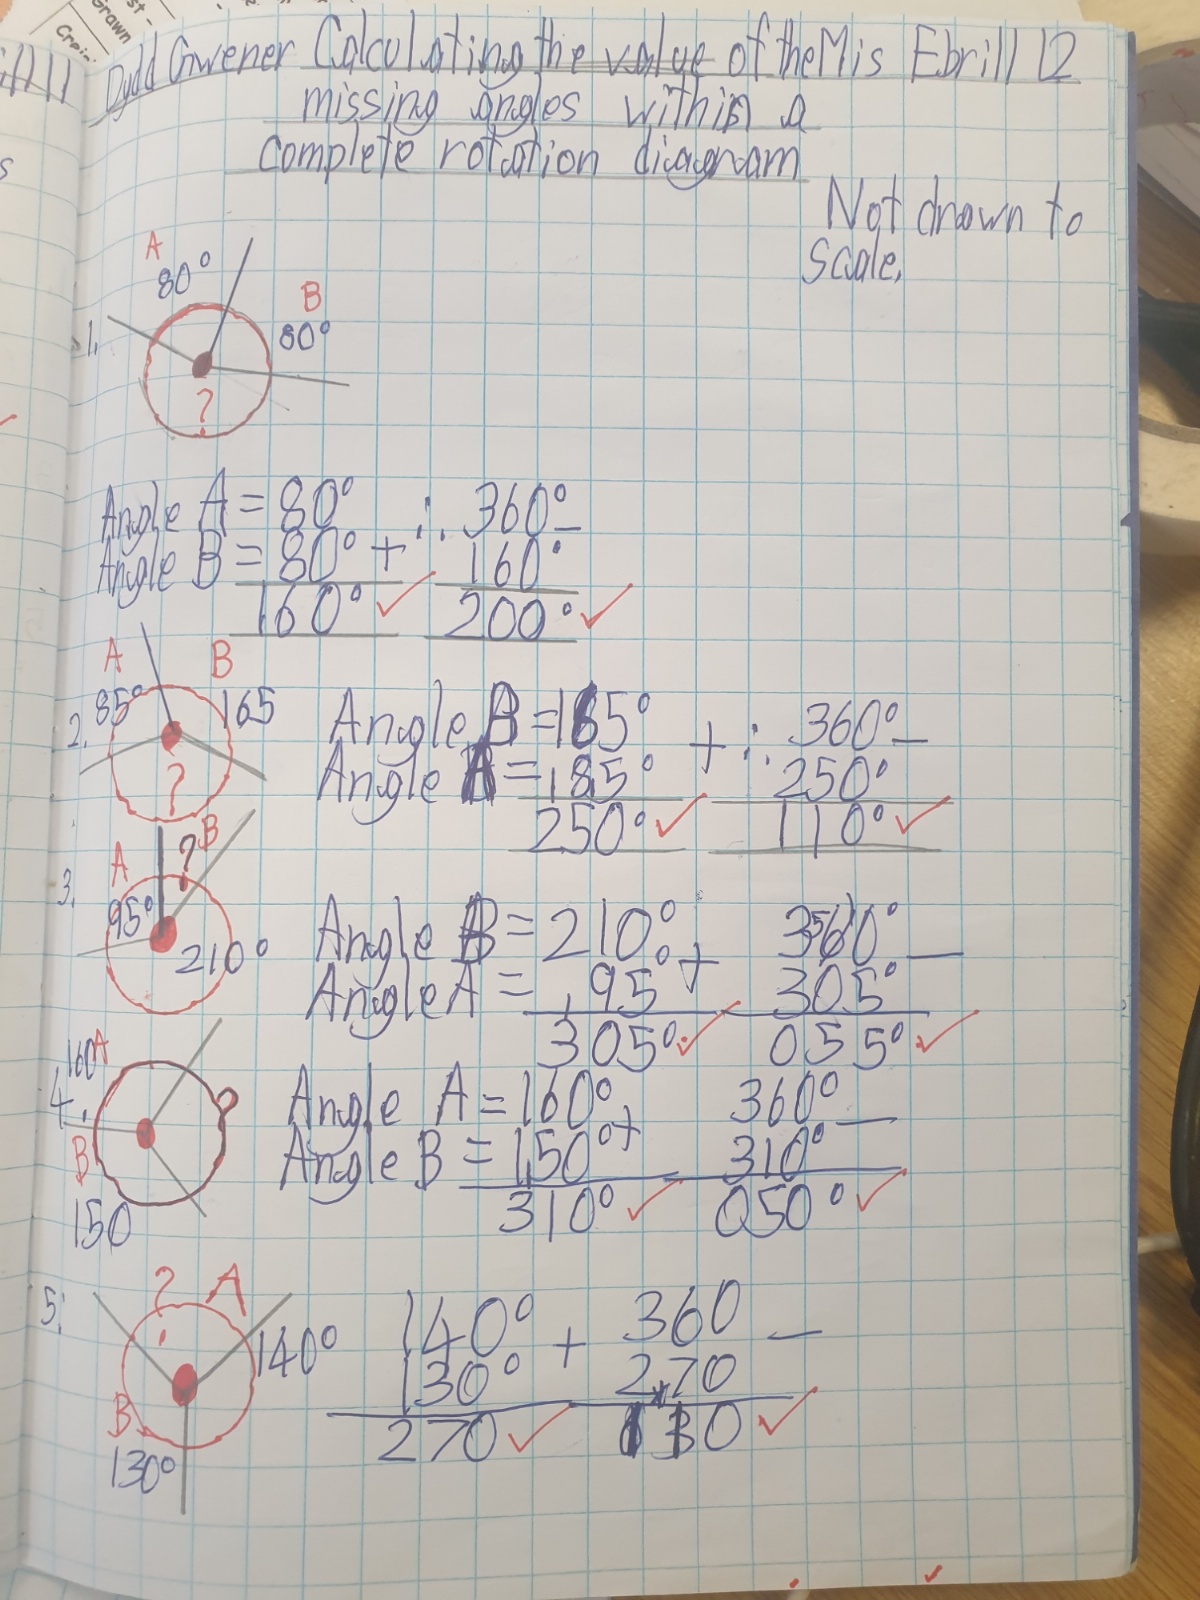 Grawn
Dydd Gwener Calculating the value of the Mis Ebrill 12
missing angles within a
complete rotation diagram
Not drawn to
scale.
A
80°
B
80°
1.
?
Angle A = 80° ∴ 360° -
Angle B = 80° + 160°
160° ✓ 200° ✓
A B
85° 165
2.
?
Angle B = 165° + ∴ 360° -
Angle A = 85° 250°
250° ✓ 110° ✓
A ? B
3.
95°
210°
Angle B = 210° + 360° -
Angle A = 95° 305°
305° ✓ 055° ✓
160 A
4.
B
150
Angle A = 160° + 360° -
Angle B = 150° 310°
310° ✓ 050° ✓
5.
? A
140°
B
130°
140° + 360 -
130° 270
270 ✓